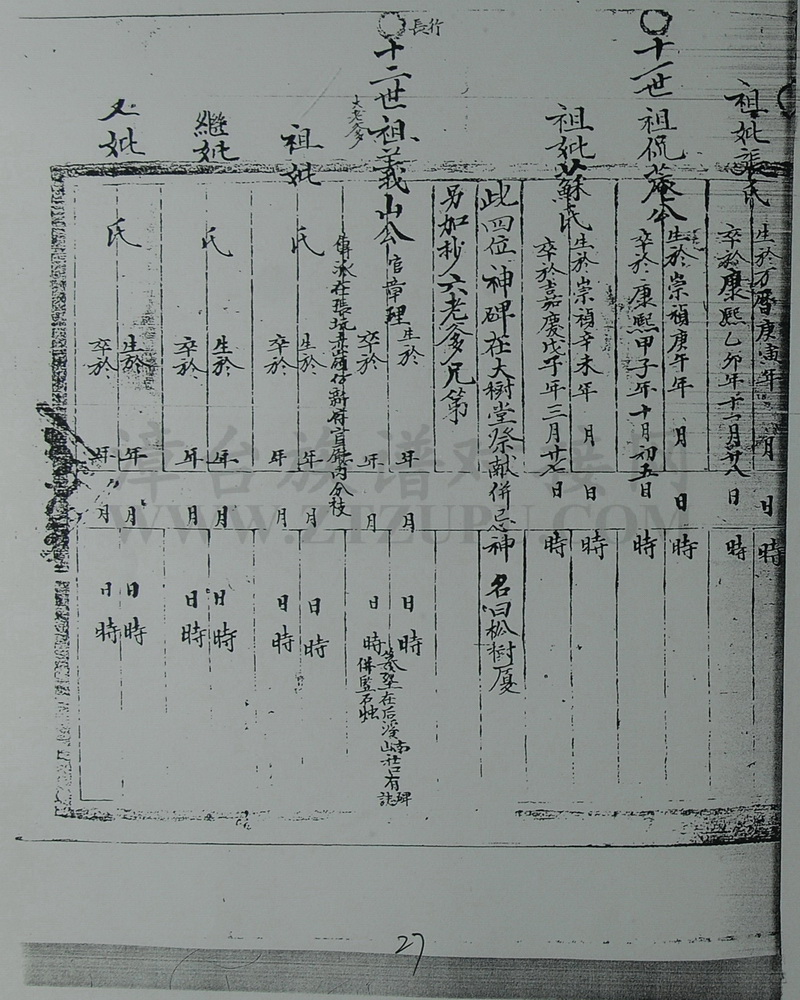 祖妣張氏
生於万曆庚寅年 月 日 時
卒於康熙乙卯年十二月廿八日 時
十一世祖侃菴公
生於崇禎庚午年 月 日 時
卒於康熙甲子年十月初五日 時
祖妣蘇氏
生於崇禎辛未年 月 日 時
卒於嘉慶戊子年三月廿七日 時
此四位神碑在大樹堂祭献併忌神 名曰松樹厦
另加抄六老爹兄第
長行
十二世祖義山公官章理
大老爹
生於 年 月 日 時
卒於 年 月 日 時
墓塟在后溪南山社口有碑誌
併監石烛
祖妣 氏
生於 年 月 日 時
卒於 年 月 日 時
継妣 氏
生於 年 月 日 時
卒於 年 月 日 時
又妣 氏
生於 年 月 日 時
卒於 年 月 日 時
27
漳台族谱对接网
WWW.ZTZUPU.COM